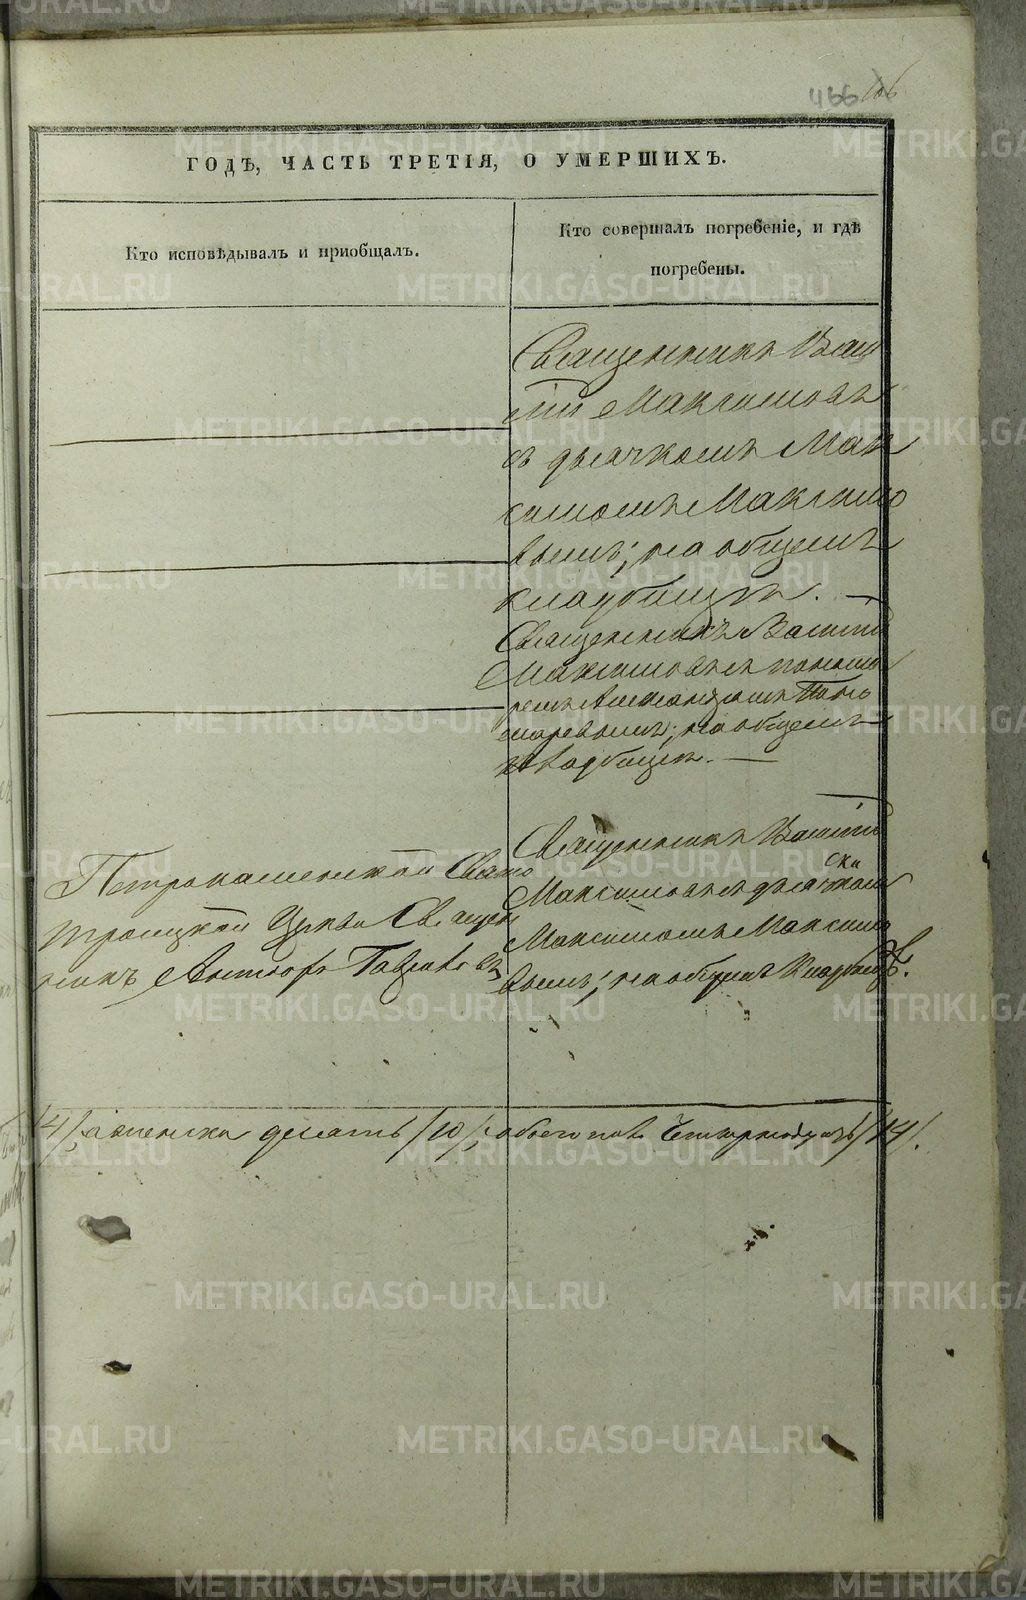 466 106
ГОДЪ, ЧАСТЬ ТРЕТІЯ, О УМЕРШИХЪ.
Кто исповѣдывалъ и приобщалъ.
Кто совершалъ погребеніе, и гдѣ
погребены.
Священникъ Васи
лій Максимовъ
съ дьячкомъ Мак
симомъ Максимо
вымъ; на общемъ
кладбищѣ.
Священникъ Василій
Максимовъ съ понома
ремъ Александромъ Поно
маревымъ; на общемъ
кладбищѣ.
Петрокаменской Свято
троицкой Церкви Священ
никъ
Священникъ Василій
Максимовъ съ дьячком
Максимомъ Максимо
вымъ; на общемъ Кладбищѣ.
/4/, а женска десять /10/; обоего пола Четырнадцать /14/.
METRIKI.GASO-URAL.RU